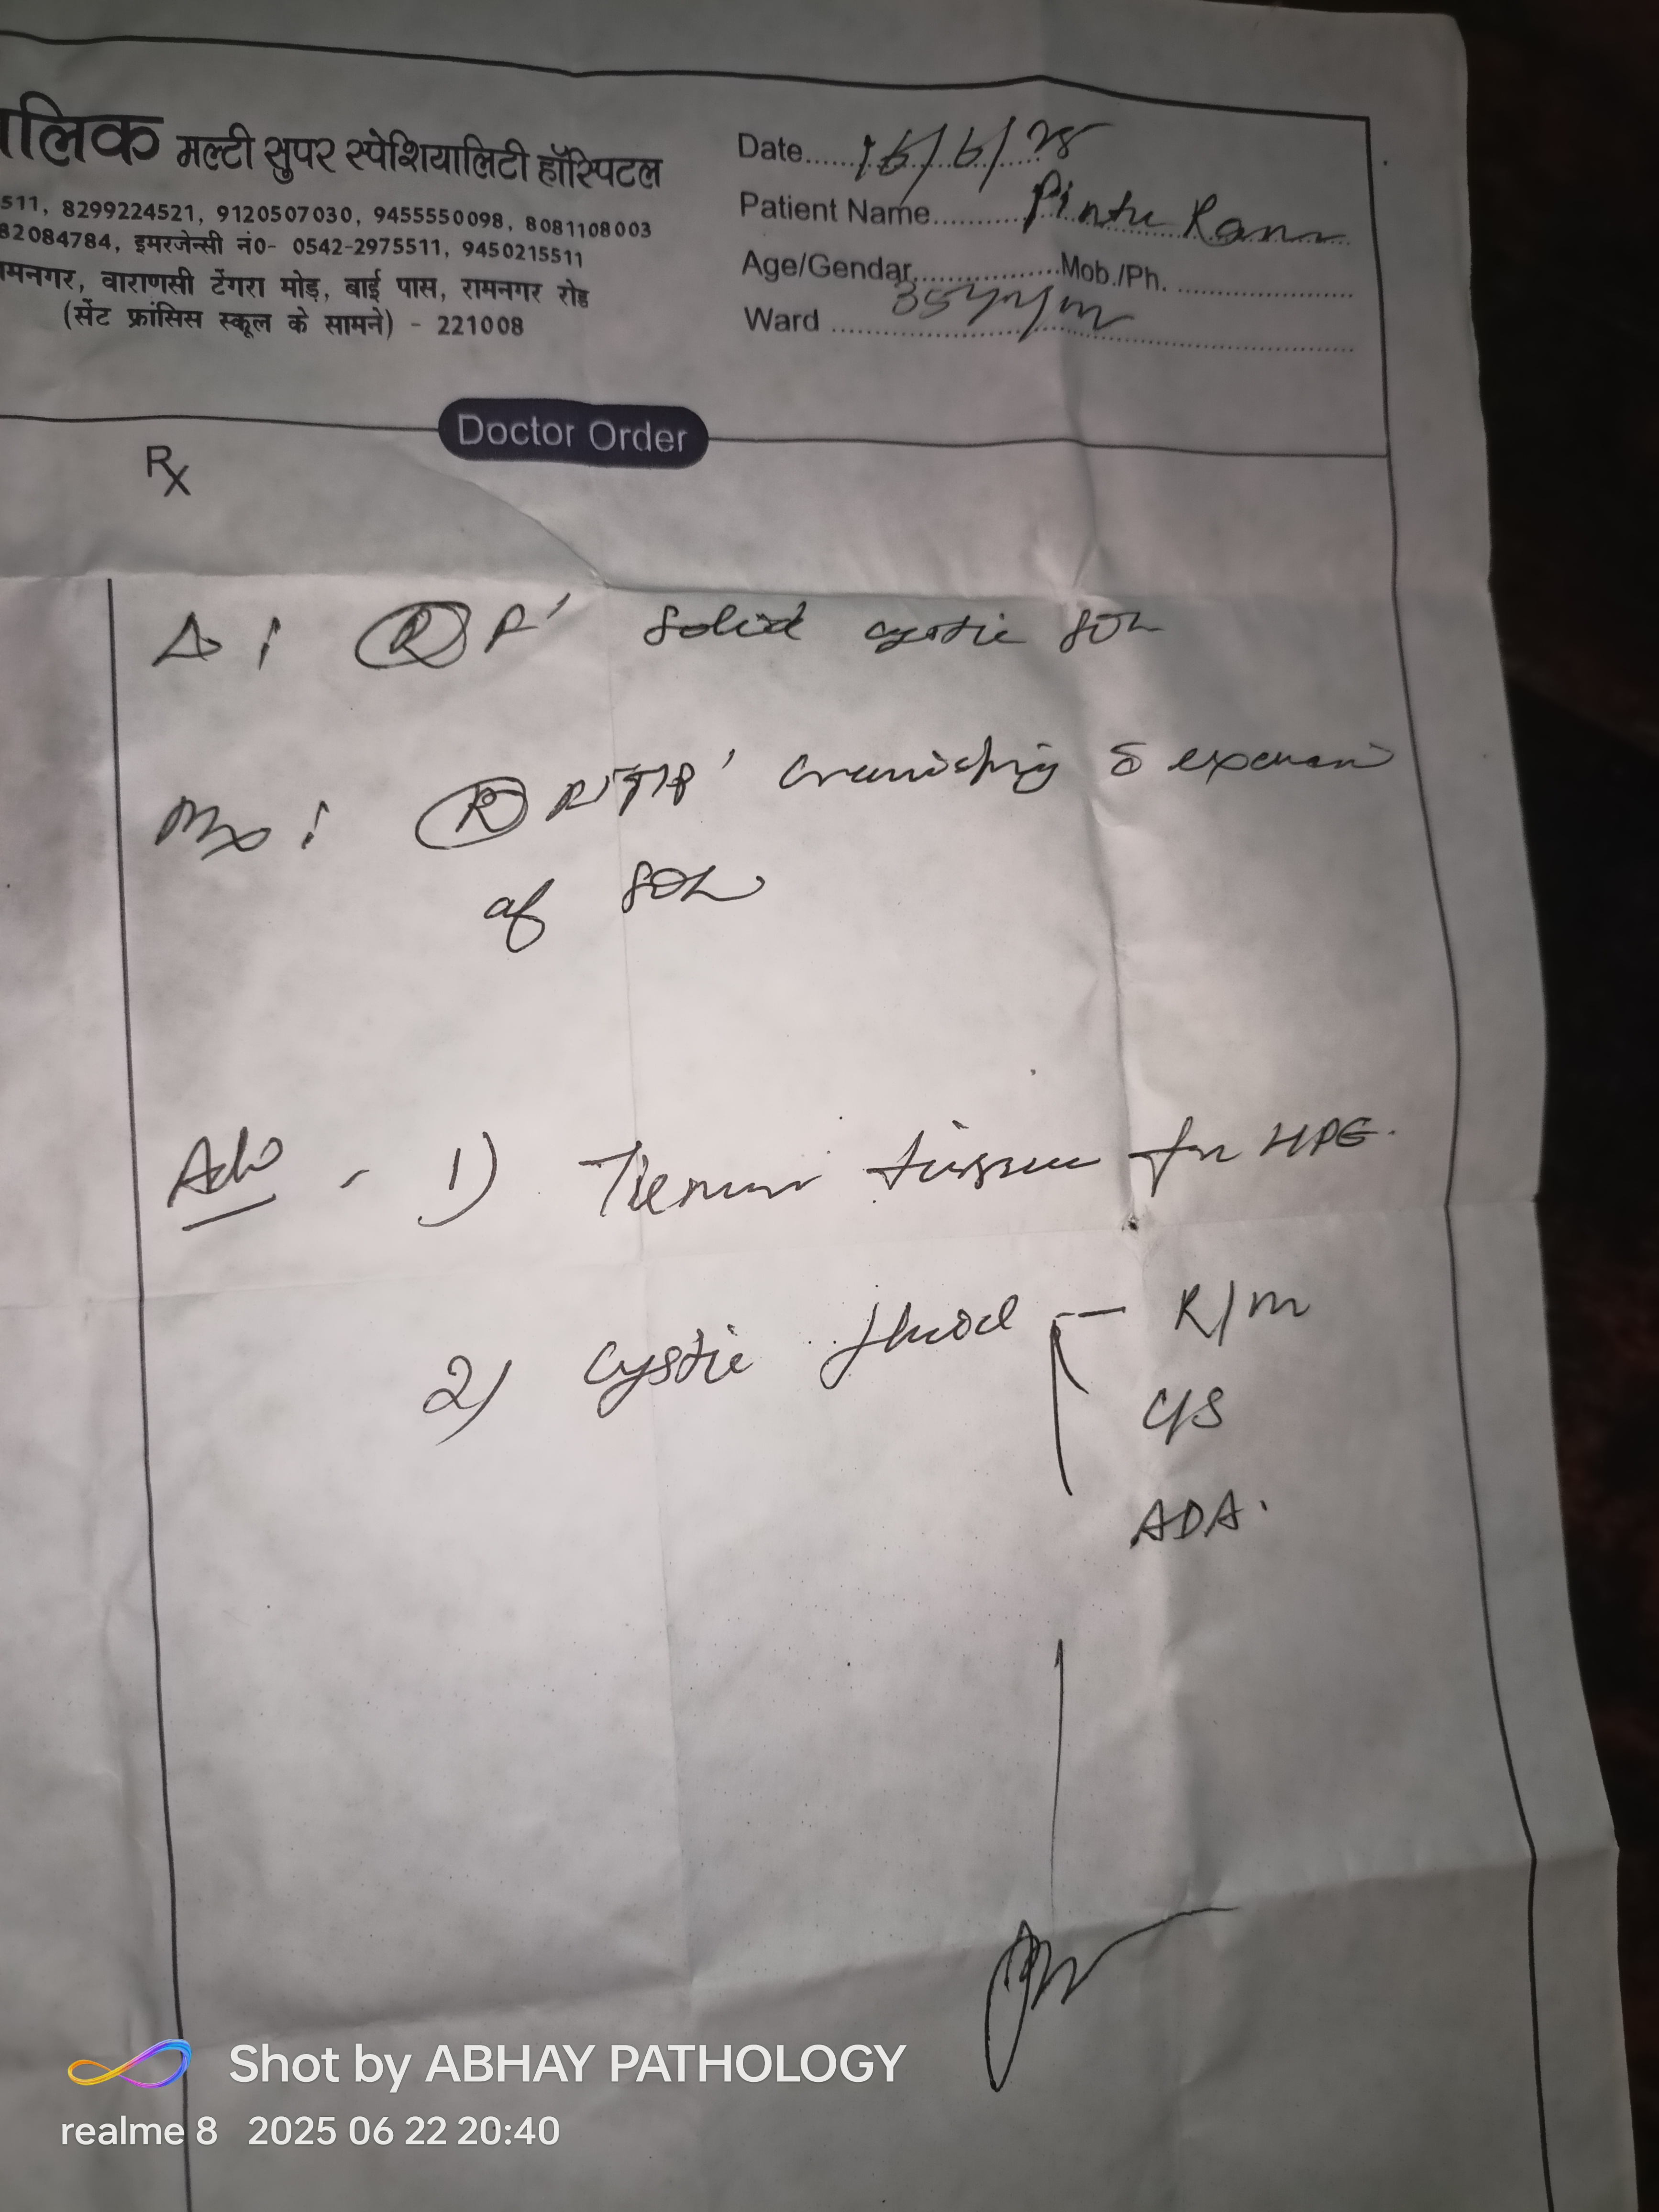 ालिक मल्टी सुपर स्पेशियालिटी हॉस्पिटल
511, 8299224521, 9120507030, 9455550098, 8081108003
82084784, इमरजेन्सी नं0- 0542-2975511, 9450215511
मनगर, वाराणसी टेंगरा मोड़, बाई पास, रामनगर रोड
(सेंट फ्रांसिस स्कूल के सामने) - 221008
Date
Patient Name Pintu
Age/Gendar Mob./Ph.
35 / m
Ward
Doctor Order
Rx
Δ : (R) F' Solid cystic SOL
: (R) craniotomy
of SOL
Adv - 1) tissue for HPE.
2) Cystic fluid - R/M
C/S
ADA.
Shot by ABHAY PATHOLOGY
realme 8 2025 06 22 20:40